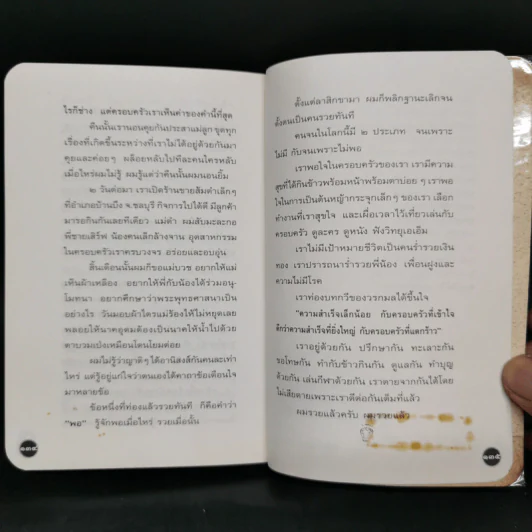 ไรก็ช่าง แต่ครอบครัวเราเห็นค่าของคำนี้ที่สุด
คืนนั้นเรานอนคุยกันประสาแม่ลูก ขุดทุก
เรื่องที่เกิดขึ้นระหว่างที่เราไม่ได้อยู่ด้วยกันมา
คุยและค่อยๆ ผล็อยหลับไปทีละคนใครหลับ
เมื่อไหร่ผมไม่รู้ ผมรู้แต่ว่าคืนนั้นผมนอนยิ้ม
๒ วันต่อมา เราเปิดร้านขายส้มตำเล็กๆ
ที่อำเภอบ้านบึง จ.ชลบุรี กิจการไปได้ดี มีลูกค้า
มารอกินกันเลยทีเดียว แม่ตำ ผมสับมะละกอ
พี่ชายเสิร์ฟ น้องคนเล็กล้างจาน อุตสาหกรรม
ในครอบครัวเราครบวงจร อร่อยและอบอุ่น
สิ้นเดือนนั้นผมก็ขอแม่บวช อยากให้แม่
เห็นผ้าเหลือง อยากให้พี่กับน้องได้ร่วมอนุ-
โมทนา อยากศึกษาว่าพระพุทธศาสนาเป็น
อย่างไร วันมอบผ้าไตรแม่ร้องไห้ไม่หยุดเลย
พลอยให้นาคอุดมต้องเป็นนาคให้น้ำไปด้วย
ตาบวมเป่งเหมือนโดนโยมต่อย
ผมไม่รู้ว่าญาติๆ ได้อานิสงส์กันคนละเท่า
ไหร่ แต่รู้อยู่แก่ใจว่าตนเองได้คาถาข้อเตือนใจ
มาหลายข้อ
ข้อหนึ่งที่ท่องแล้วรวยทันที ก็คือคำว่า
"พอ" รู้จักพอเมื่อไหร่ รวยเมื่อนั้น
๑๓๔
ตั้งแต่ลาสิกขามา ผมก็พลิกฐานะเลิกจน
ตั้งตนเป็นคนรวยทันที
คนจนในโลกนี้มี ๒ ประเภท จนเพราะ
ไม่มี กับจนเพราะไม่พอ
เราพอใจในครอบครัวของเรา เรามีความ
สุขที่ได้กินข้าวพร้อมหน้าพร้อมตาบ่อย ๆ เราพอ
ใจในการเป็นต้นหญ้ากระจุกเล็กๆ ของเรา เลือก
ทำงานที่เราสุขใจ และเผื่อเวลาไว้เที่ยวเล่นกับ
ครอบครัว ดูละคร ดูหนัง ฟังวิทยุเอเอ็ม
เราไม่มีเป้าหมายชีวิตเป็นคนร่ำรวยเงิน
ทอง เราปรารถนาร่ำรวยพี่น้อง เพื่อนฝูงและ
ความไม่มีโรค
เราท่องบทกวีของวรกมลได้ขึ้นใจ
"ความสำเร็จเล็กน้อย กับครอบครัวที่เข้าใจ
ดีกว่าความสำเร็จที่ยิ่งใหญ่ กับครอบครัวที่แตกร้าว"
เราอยู่ด้วยกัน ปรึกษากัน ทะเลาะกัน
ขอโทษกัน ทำกับข้าวกินกัน ดูแลกัน ทำบุญ
ด้วยกัน เล่นกีฬาด้วยกัน เราตายจากกันได้โดย
ไม่เสียดายเพราะเราดีต่อกันเต็มที่แล้ว
ผมรวยแล้วครับ ผมรวยแล้ว
๑๓๕